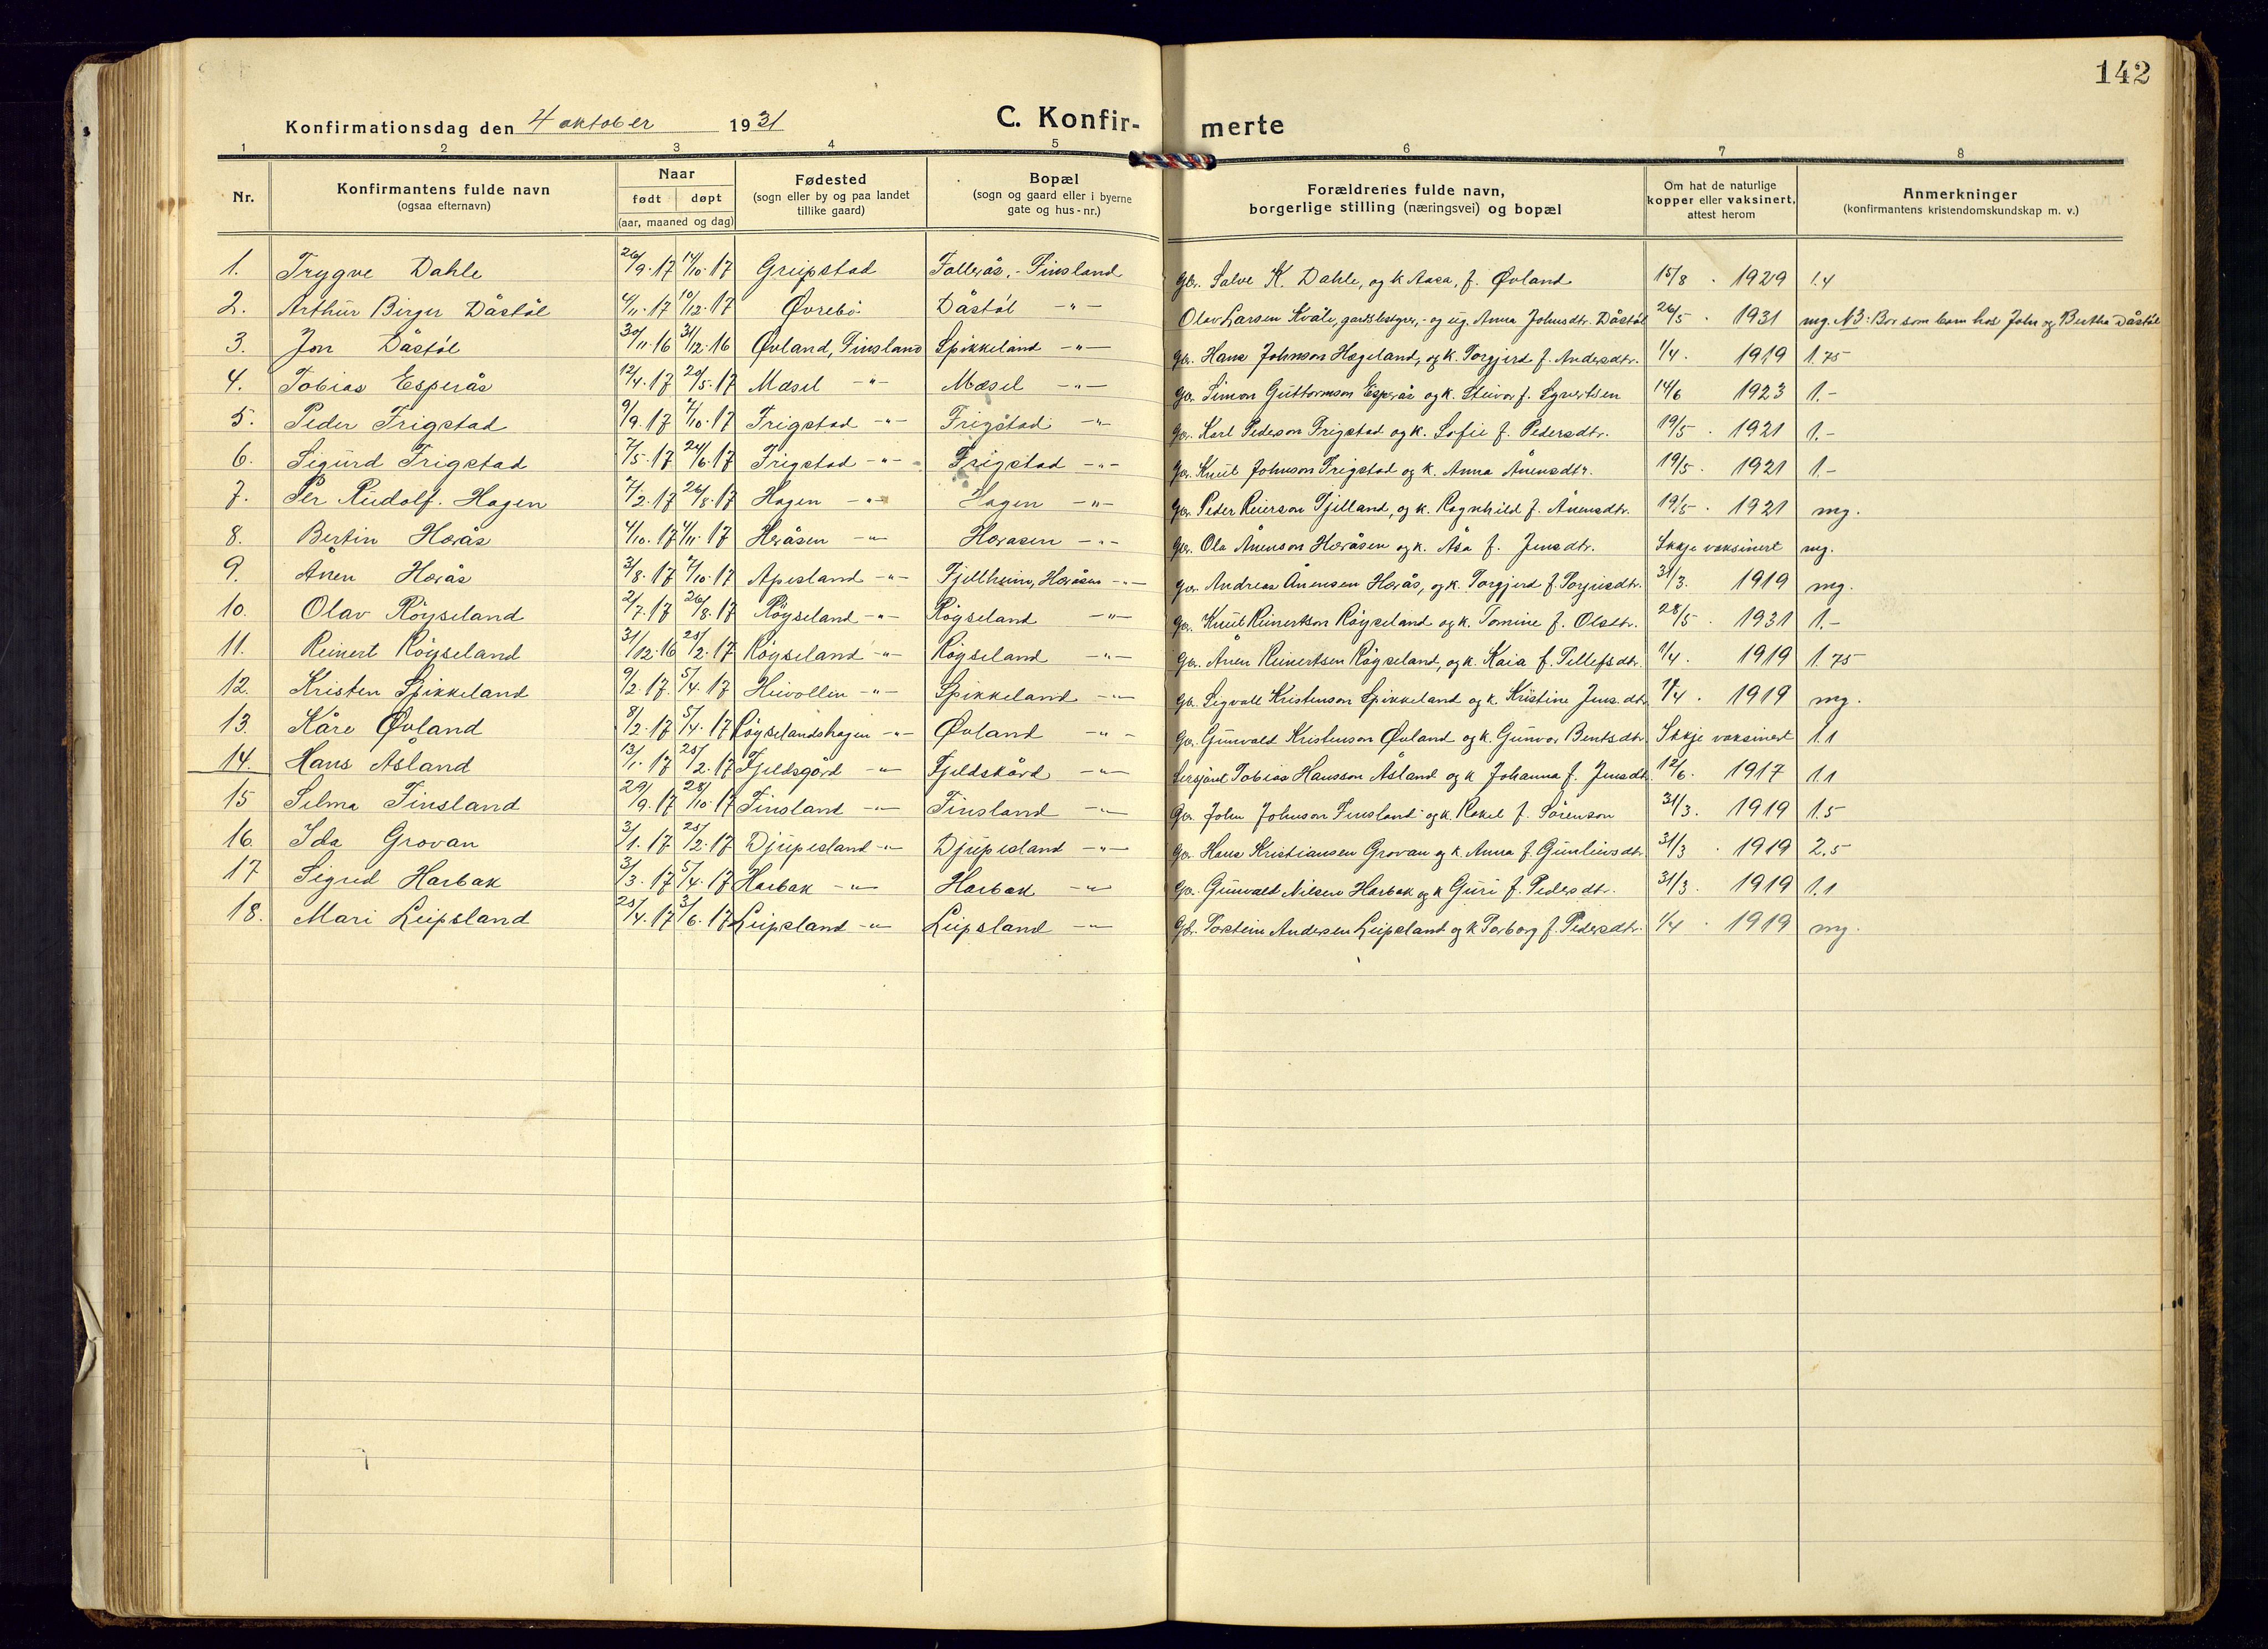 142
Konfirmationsdag den 4 oktober 1931 C. Konfir- merte
1 2 3 4 5 6 7 8
Nr. Konfirmantens fulde navn (ogsaa efternavn) Naar født døpt (aar, maaned og dag) Fødested (sogn eller by og paa landet tillike gaard) Bopæl (sogn og gaard eller i byerne gate og hus-nr.) Forældrenes fulde navn, borgerlige stilling (næringsvei) og bopæl Om hat de naturlige kopper eller vaksinert, attest herom Anmerkninger (konfirmantens kristendomskundskap m. v.)
1. Trygve Dahle 26/9.17 14/10.17 Greipstad Follerås,- Finsland Gbr. Salve K. Dahle, og k Aasa, f. Øvland 15/8 . 1929 1.4
2. Arthur Birger Dåstöl 4/11.17 10/12.17 Øvrebö Dåstöl -"- Olav Larsen Kvåle, gardsbestyrer,- og ug. Anna Johnsdtr. Dåstöl 26/5 . 1931 mg. NB: Bor som barn hos John og Bertha Dåstöl
3. Jon Dåstöl 30/11.16 31/12.16 Øvland, Finsland Spikkeland -"- Gbr. Hans Johnson Hægeland, og k. Torgjerd f. Andersdtr. 1/4. 1919 1.75
4. Tobias Esperås 12/4.17 20/5.17 Mæsel -"- Mæsel -"- Gbr. Simon Guttormson Esperås og k. Steivor f. Syvertsen 14/6 1923 1.-
5. Peder Frigstad 9/9.17 7/10.17 Frigstad -"- Frigstad -"- Gbr. Karl Pederson Frigstad og k. Sofie f. Pedersdtr. 19/5 . 1921 1.-
6. Sigurd Frigstad 7/5.17 24/6.17 Frigstad -"- Frigstad -"- Gbr. Knut Johnson Frigstad og k. Anna Ånensdtr. 19/5 . 1921 1.-
7. Per Rudolf. Hagen 7/2.17 26/8.17 Hagen -"- Hagen -"- Gbr. Peder Reierson Fjelland, og k. Ragnhild f. Ånensdtr. 19/5 . 1921 mg.
8. Bertin Hærås 4/10.17 4/11.17 Heråsen -"- Heråsen -"- Gbr. Ola Ånenson Hæråsen og k. Åsa f. Jensdtr. Ikkje vaksinert mg.
9. Ånen Hærås 3/8.17 7/10.17 Apesland -"- Fjellheim, Hæråsen -"- Gbr. Andreas Ånensen Hærås, og k. Torgjerd f. Torjusdtr. 31/3. 1919 mg.
10. Olav Röyseland 2/7.17 26/8.17 Röyseland -"- Röyseland -"- Gbr. Knut Reinertson Röyseland og k. Tomine f. Olsdtr. 28/5 . 1931 1.-
11. Reinert Röyseland 31/12.16 25/2.17 Röyseland -"- Röyseland -"- Gbr. Ånen Reinertsen Röyseland, og k. Kaia f. Tellefsdtr. 1/4. 1919 1.75
12. Kristen Spikkeland 9/2.17. 5/4.17 Heivollen -"- Spikkeland -"- Gbr. Sigvall Kristenson Spikkeland og k. Kristine Jensdtr. 1/4 . 1919 mg.
13. Kåre Øvland 8/2.17 5/4.17 Röyselandshagen -"- Øvland -"- Gbr. Gunvald Kristenson Øvland og k. Gunvor Bentsdtr. Ikkje vaksinert 1.1
14. Hans Åsland 13/1.17 25/2.17 Fjeldsgård -"- Fjeldskård -"- Sersjant Tobias Hansson Åsland og k Johanna f. Jensdtr. 12/6. 1917 1.1
15 Selma Finsland 29/9.17 28/10.17 Finsland -"- Finsland -"- Gbr. John Johnson Finsland og k. Rakel f. Sörenson 31/3. 1919 1.5
16. Ida Grovan 3/1.17 25/2.17 Djupesland -"- Djupesland -"- Gbr. Hans Kristiansen Grovan og k. Anna f. Gunleivsdtr. 31/3 . 1919 2.5
17 Sigrid Harbak 3/3.17 5/4.17 Harbak -"- Harbak -"- Gbr. Gunvald Nilsen Harbak og k Guri f. Pedersdtr. 31/3. 1919 1.1
18. Mari Leipsland 25/4.17 3/6.17 Leipsland -"- Leipsland -"- Gbr. Torstein Andersen Leipsland og k Torborg f. Pedersdtr. 1/4 . 1919 mg.